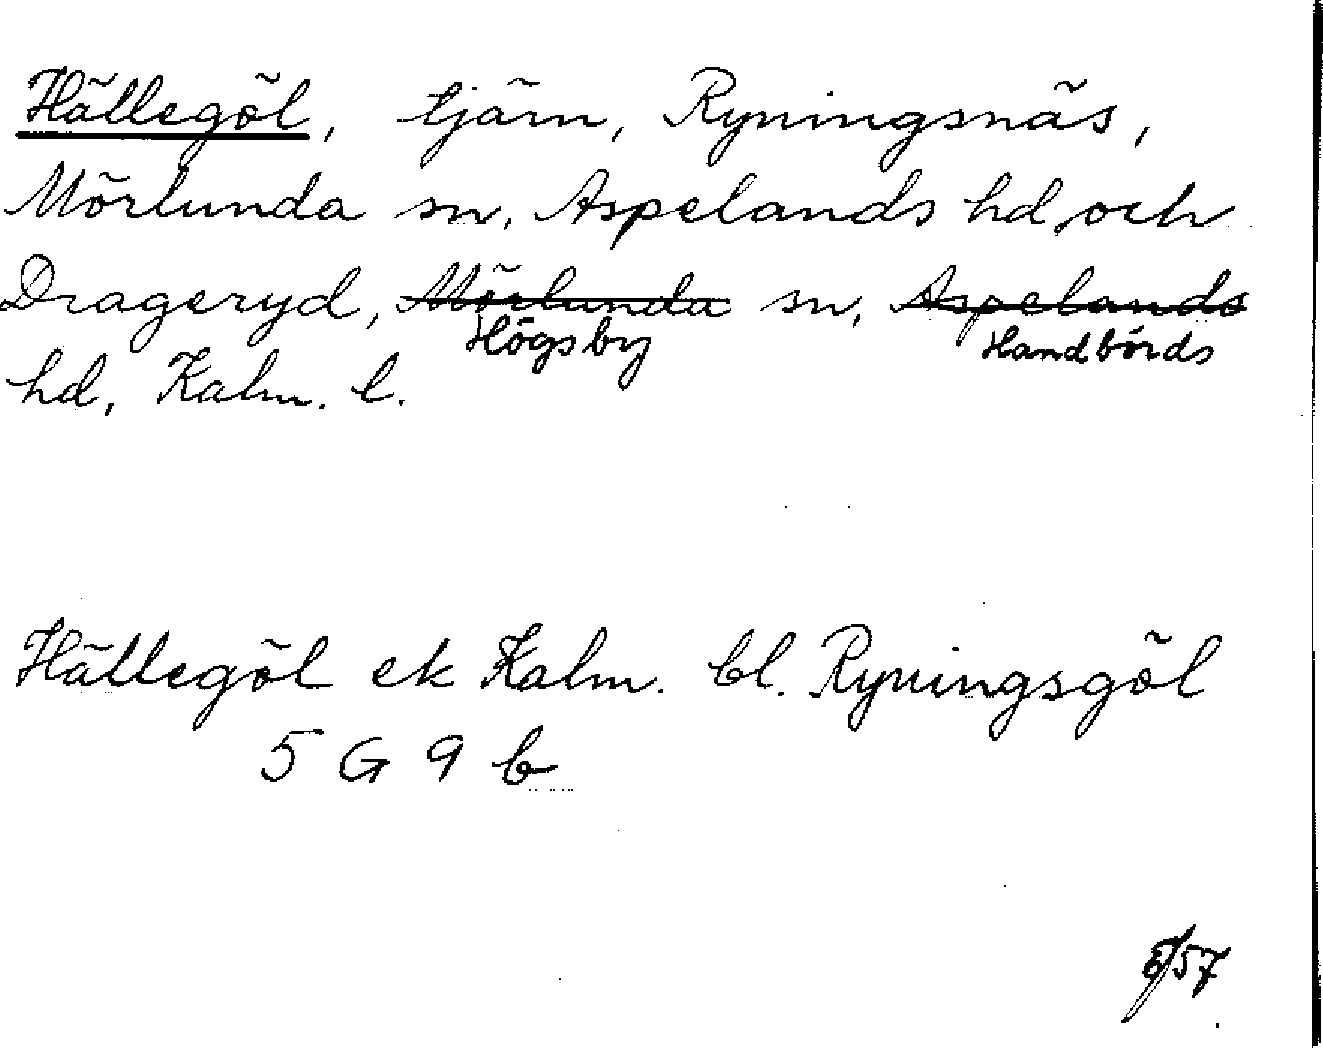 Hällegöl, tjärn, Ryningsnäs,
Mörlunda sn, Aspelands hd, och
Drageryd, Mörlunda sn, Aspelands
Högsby Handbörds
hd, Kalm. l.
Hällegöl ek Kalm. bl. Ryningsgöl
5 G 9 b